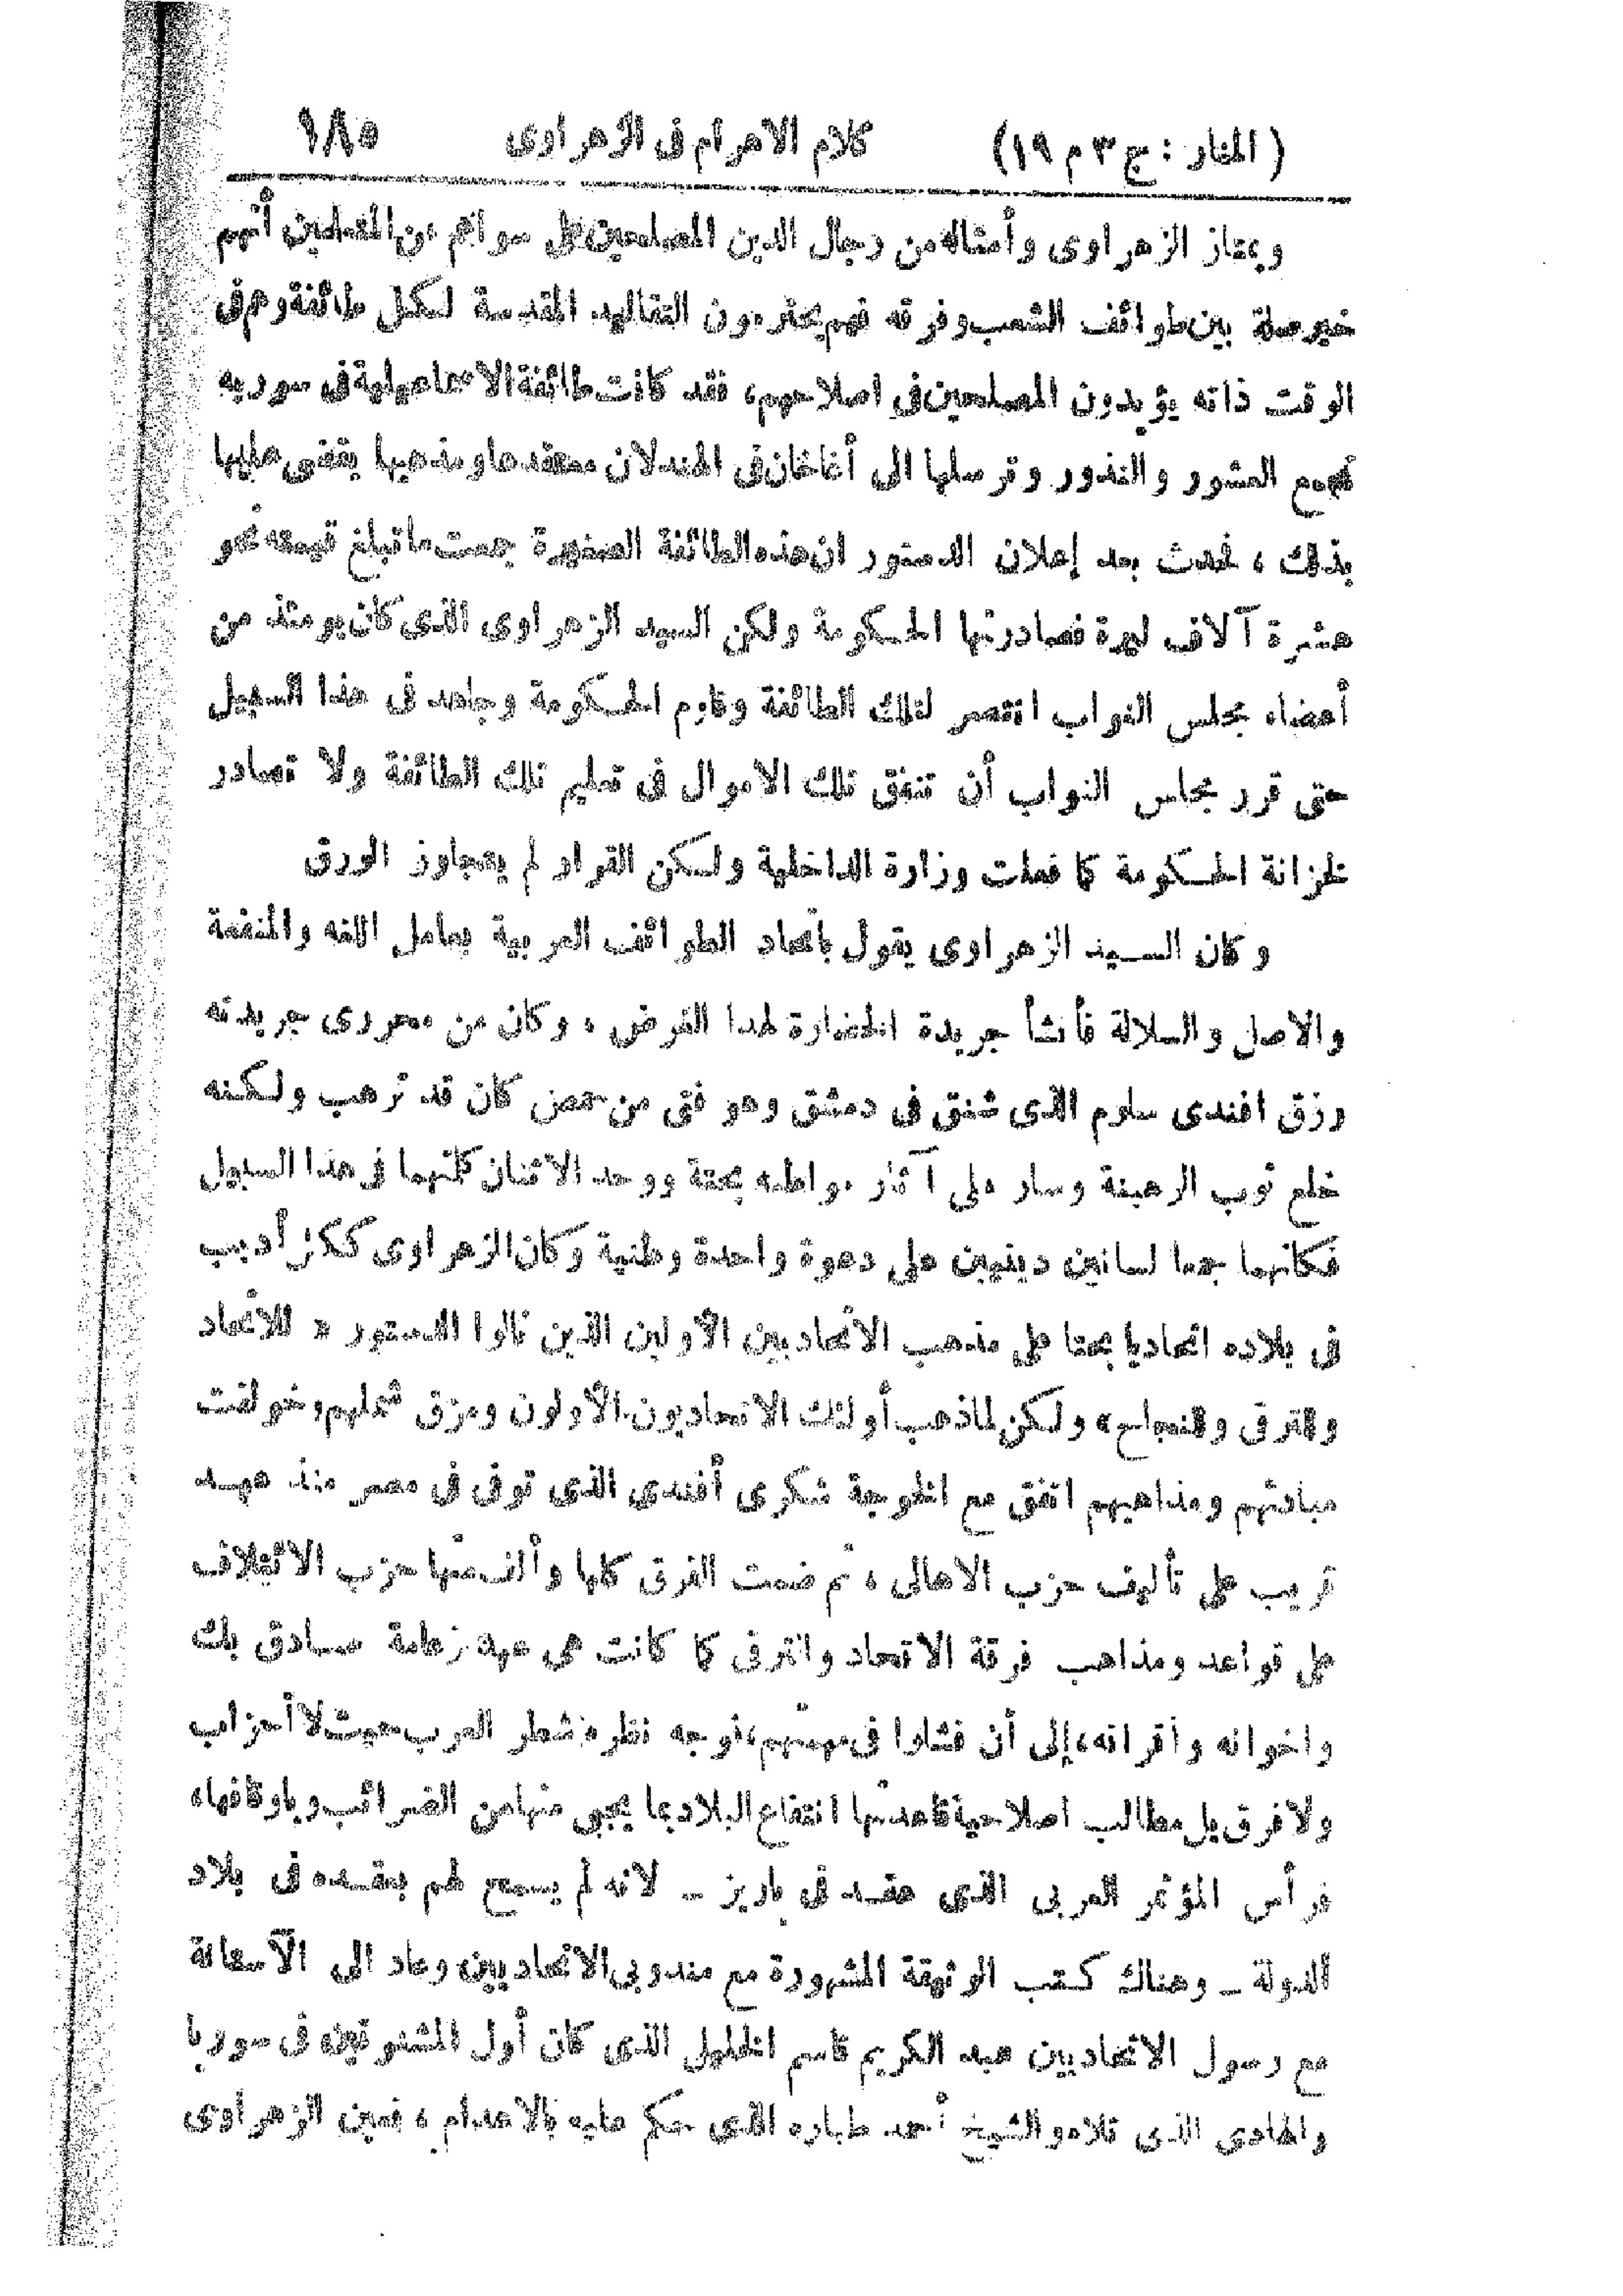 (المنار : ج ٣ م ١٩) كلام الاهرام في الزهراوى ١٨٥
ويمتاز الزهراوى وأمثاله من رجال الدين المصلحين على سواهم من المتعلمين أنهم
خير صلة بين طوائف الشعب وفرقه فهم يحترمون التقاليد المقدسة لكل طائفة وهم في
الوقت ذاته يؤيدون المصلحين في اصلاحهم، فقد كانت طائفة الاسماعيلية في سوريه
تجمع العشور والنذور وترسلها الى أغاخان في الهند لان معتقدها ومذهبها يقضى عليها
بذلك ، فحدث بعد إعلان الدستور ان هذه الطائفة الصغيرة جمعت ما تبلغ قيمته نحو
عشرة آلاف ليرة فصادرتها الحكومة ولكن السيد الزهراوى الذى كان يومئذ من
أعضاء مجلس النواب انتصر لتلك الطائفة وقاوم الحكومة وجاهد في هذا السبيل
حتى قرر مجلس النواب أن تنفق تلك الاموال في تعليم تلك الطائفة ولا تصادر
لخزانة الحكومة كما فعلت وزارة الداخلية ولكن القرار لم يتجاوز الورق
وكان السيد الزهراوى يقول باتحاد الطوائف العربية بعامل اللغة والمنفعة
والاصل والسلالة فأنشأ جريدة الحضارة لهذا الغرض ، وكان من محررى جريدته
رزق افندى سلوم الذى شنق في دمشق وهو فتى من حمص كان قد ترهب ولكنه
خلع ثوب الرهبنة وسار على آثار مواطنه بحتة ووحد الاثنان كلمتهما في هذا السبيل
فكانهما جمعا لسانين دينيين على دعوة واحدة وطنية وكان الزهراوى ككل أديب
في بلاده اتحاديا بحتا على مذهب الاتحاديين الأولين الذين نالوا الدستور « للاتحاد
والترقى والنجاح » ولكن لما ذهب أولئك الاتحاديون الأولون ومزق شملهم وخولفت
مبادئهم ومذاهبهم اتفق مع الخوجة شكرى أفندى الذى توفى في مصر منذ عهد
قريب على تأليف حزب الاهالى ، ثم ضمت الفرق كلها وألف منها حزب الائتلاف
على قواعد ومذاهب فرقة الاتحاد والترقى كما كانت على عهد زعامة صادق بك
واخوانه وأقرانه، إلى أن فشلوا في مهمتهم، فوجه نظره شطر العرب حيث لا أحزاب
ولا فرق بل مطالب اصلاحية قاعدتها انتفاع البلاد بما يجبى منها من الضرائب وبأوقافها،
فرأس المؤتمر العربى الذى عقد في باريز - لانه لم يسمح لهم بعقده في بلاد
الدولة - وهناك كتب الوثيقة المشهورة مع مندوبى الاتحاديين وعاد الى الآستانة
مع رسول الاتحاديين عبد الكريم قاسم الخليل الذى كان أول المشنوقين في سوريا
والهادى الذى تلاه والشيخ أحمد طباره الذى حكم عليه بالاعدام ، فعين الزهراوى